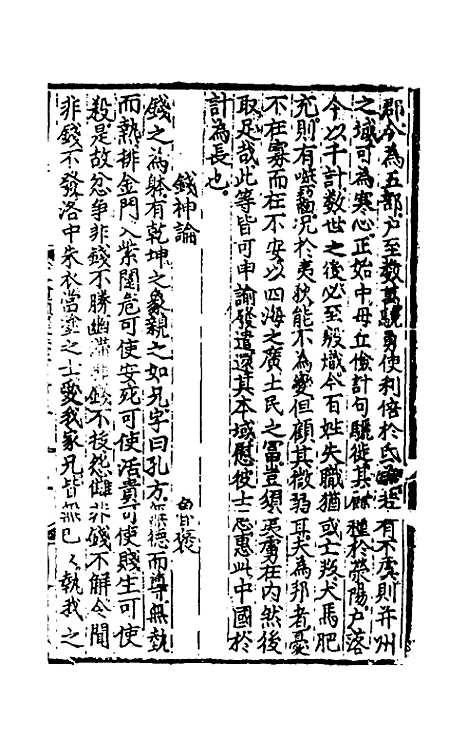 郡分為五部户至數萬驍勇便利倍於氐若有不虞則并州
之域可為寒心正始中毋丘儉討句驪徙其餘種於滎陽户落
今以千計數世之後必至殷熾今百姓失職猶或亡叛犬馬肥
充則有噬齧况於夷狄能不為變但顧其微弱耳夫為邦者憂
不在寡而在不安以四海之廣士民之富豈須夷虜在内然後
取足哉此等皆可申諭發遣還其本域慰彼土思惠此中國於
計為長也
錢神論 魯褒
錢之為體有乾坤之象親之如兄字曰孔方無德而尊無埶
而熱排金門入紫闥危可使安死可使活貴可使賤生可使
殺是故忿争非錢不勝幽滯非錢不拔怨讎非錢不解令聞
非錢不發洛中朱衣當塗之士愛我家兄皆無已〻執我之